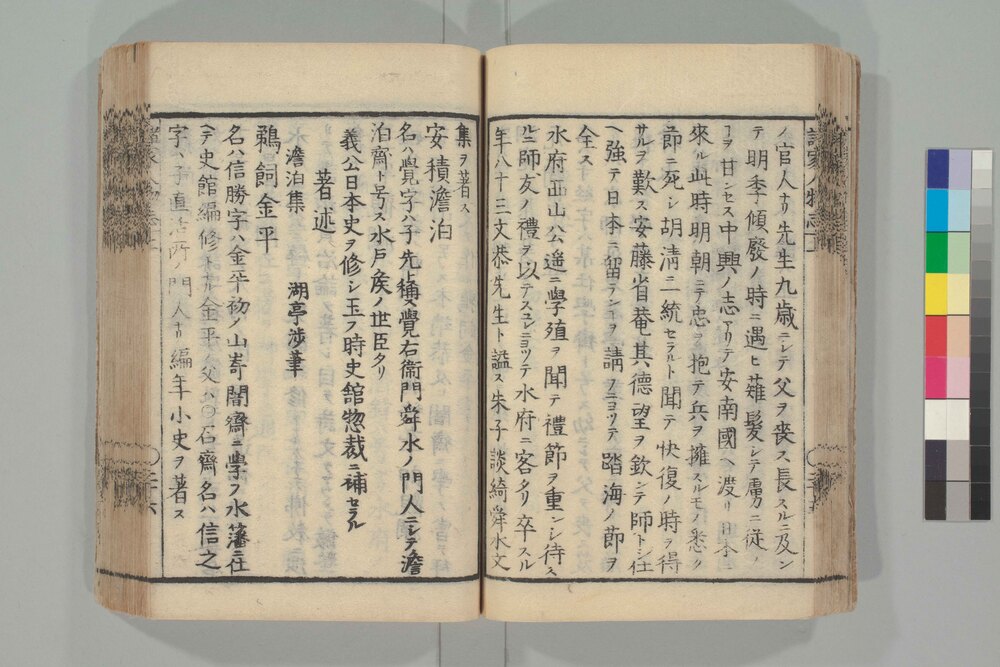 ノ官人ナリ先生九歳ニシテ父ヲ喪ス長スルニ及ン
テ明季傾廢ノ時ニ遇ヒ薙髪シテ虜ニ從ノ
ヿヲ甘ンセス中興ノ志アリテ安南國ヘ渡リ日本
來ル此時明朝ニテ忠ヲ抱テ兵ヲ擁スルモノ悉ク
節ニ死シ胡清ニ一統セラルト聞テ快復ノ時ヲ得
サルヲ歎ス安藤省菴其德望ヲ欽シテ師トシ仕
ヘ強テ日本ニ留ランヿヲ請フニヨリテ踏海ノ節ヲ
全ス
水府正山公遙ニ學殖ヲ聞テ禮節ヲ重ンシ待ス
ルニ師友ノ禮ヲ以テスコレニヨツテ水府ニ客タリ卒スル
年八十三文恭先生ト謚ス朱子談綺舜水文
集ヲ著ス
安積澹泊
名ハ覺字ハ子先ト稱ス覺右衞門舜水ノ門人ニシテ澹
泊齋ト号ス水戸矦ノ世臣タリ
義公日本史ヲ修シ玉フ時史舘惣裁ニ補セラル
著述
澹泊集 湖亭渉筆
鵜飼金平
名ハ信勝字ハ金平初メ山嵜闇齋ニ學フ水藩ニ仕
ヘテ史館編修トナル金平父ハ〇石齋名ハ信之
字ハ子直活所ノ門人ナリ編年小史ヲ著ス